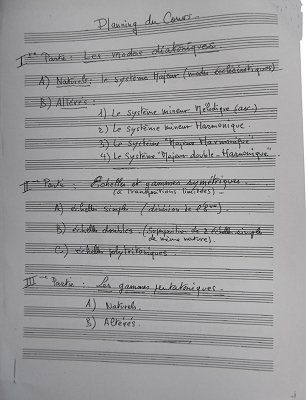 Planning du Cours.
Ière Partie : Les modes diatoniques.
A) Naturels : le système Majeur (modes ecclésiastiques)
B) Altérés :
1) Le système mineur Mélodique (asc.)
2) Le système mineur Harmonique.
3) Le système "Majeur Harmonique"
4) Le système "Majeur double-Harmonique".
II Partie : Echelles et gammes symétriques.
(à transpositions limitées).
A) échelles simples (division de l'8ve)
B) échelles doubles (superposition de 2 échelles simples
de même nature).
C) échelles polytritoniques
III Partie : Les gammes pentatoniques.
A) Naturels.
B) Altérés.